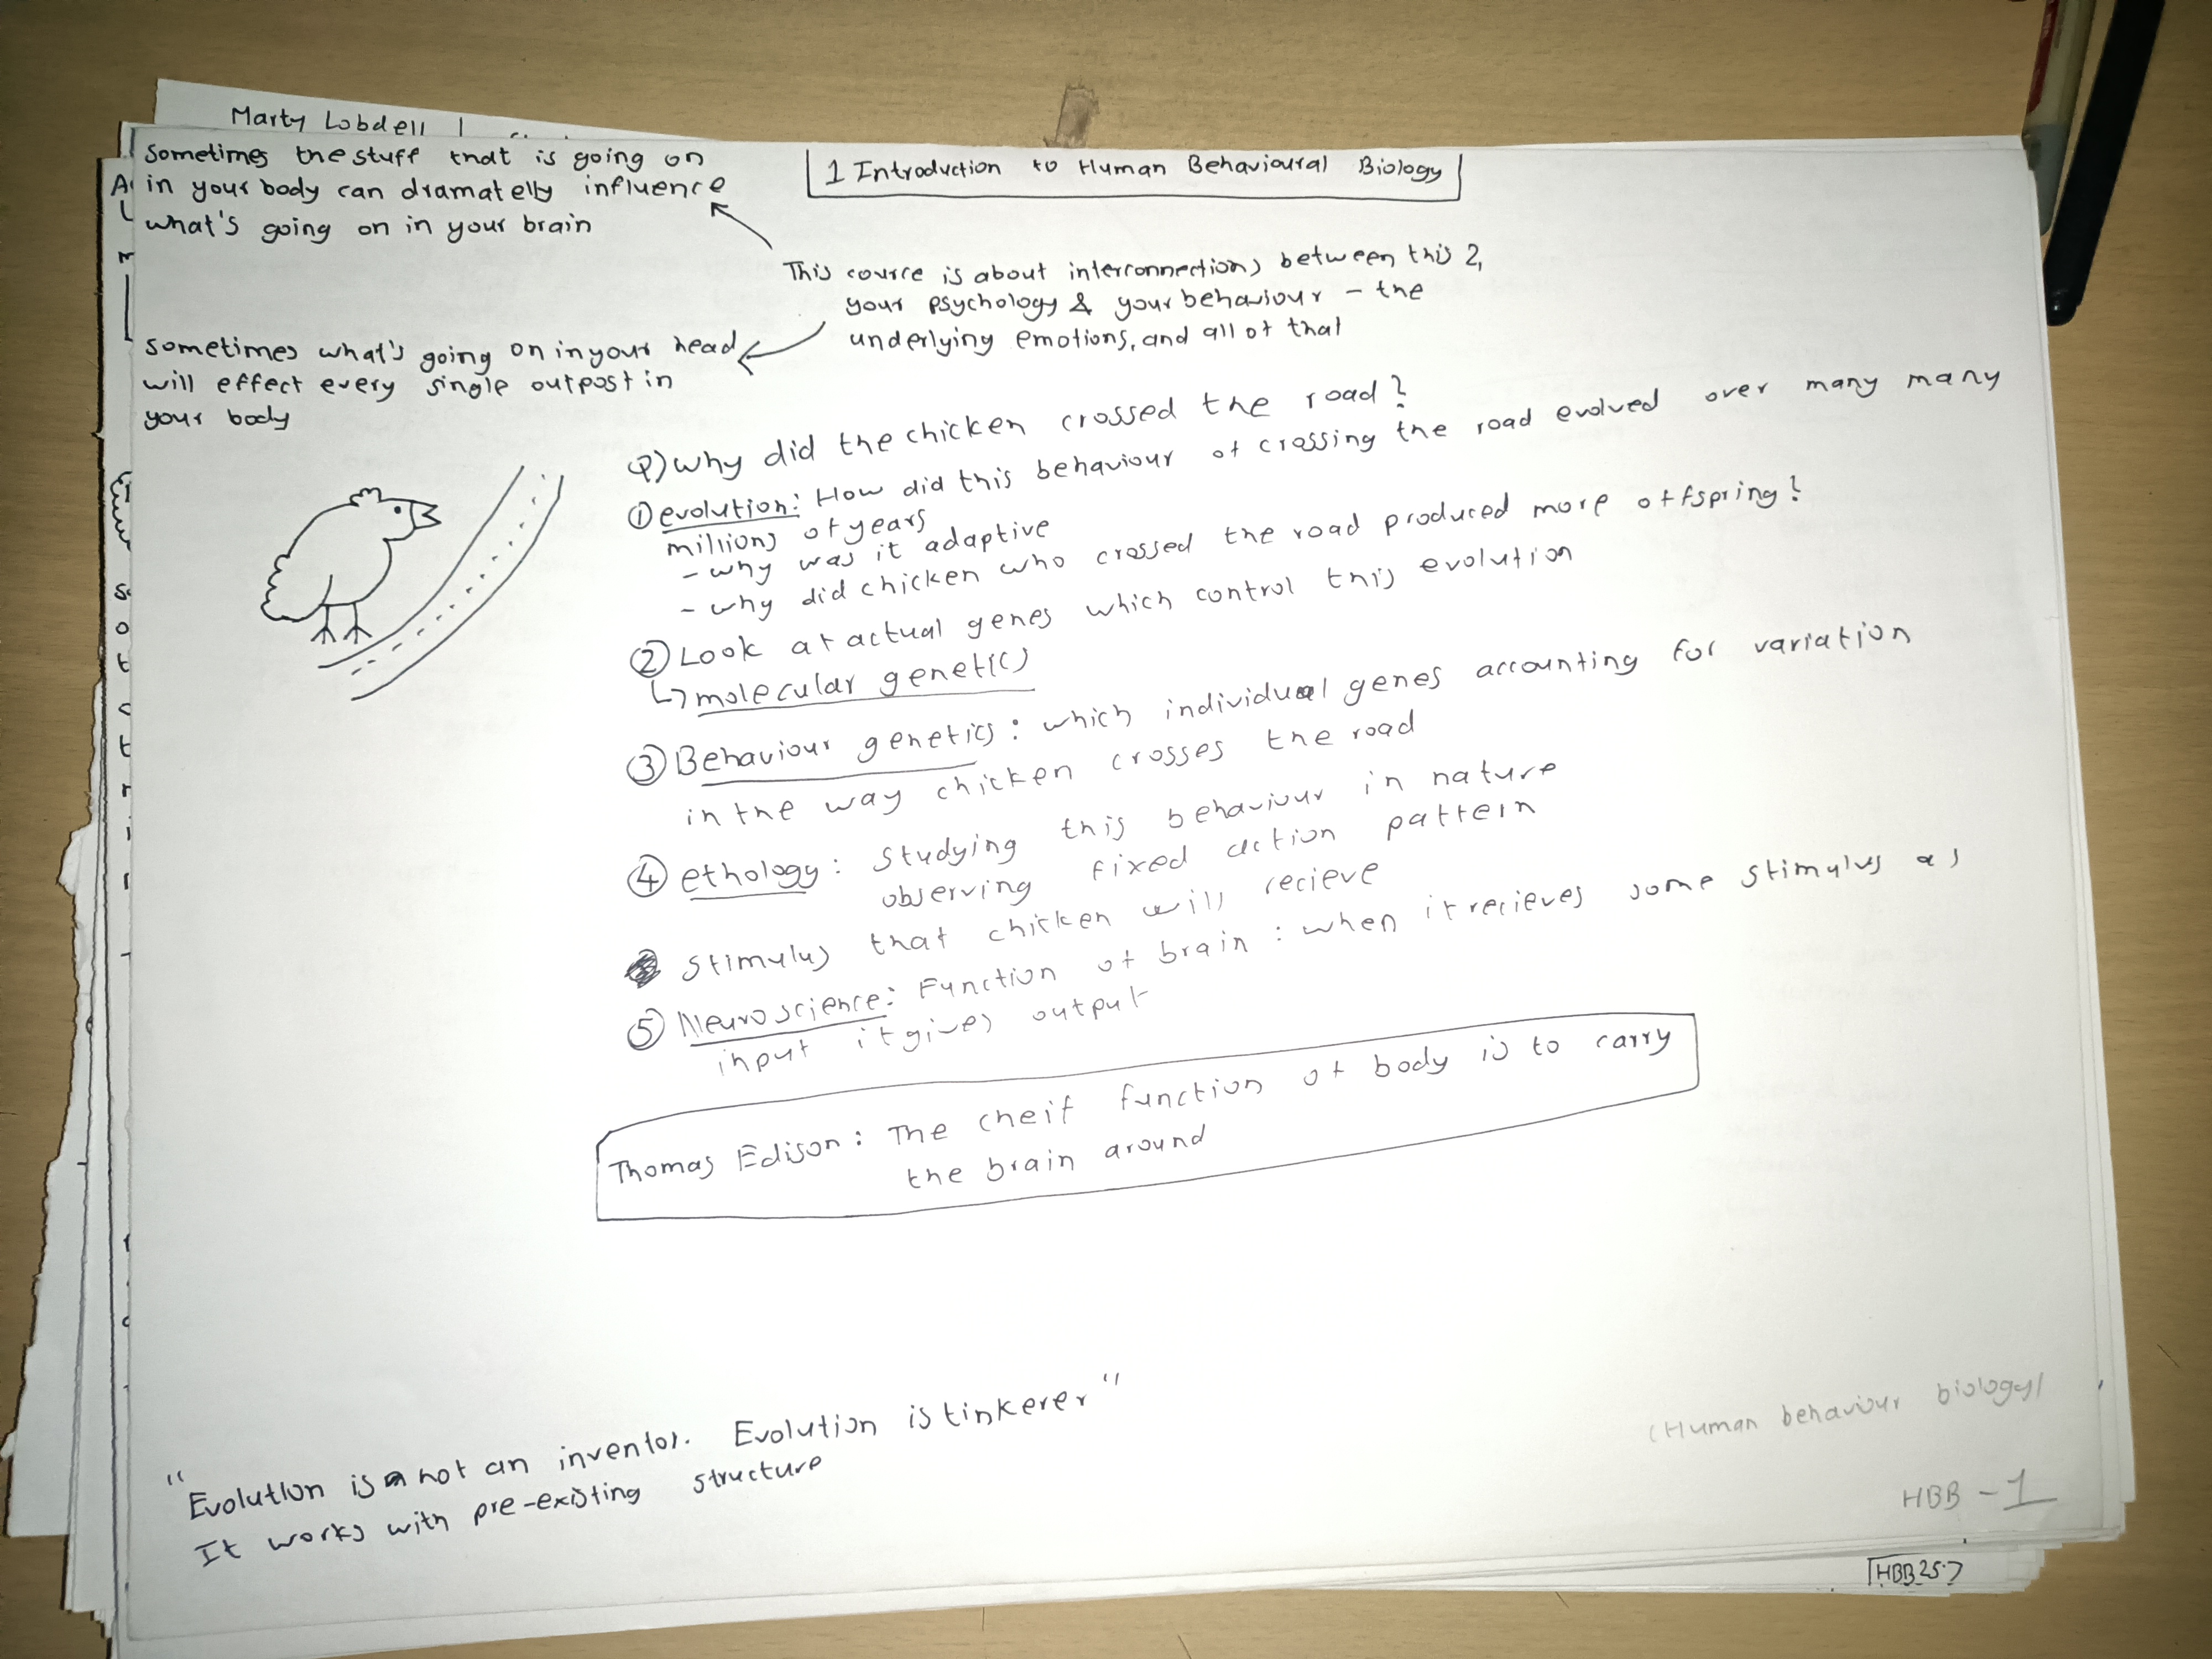 Marty Lobdell
1 Introduction to Human Behavioural Biology
sometimes the stuff that is going on
in your body can dramatelly influence
what's going on in your brain
This cource is about interconnections between this 2,
your psychology & your behaviour - the
underlying emotions, and all of that
sometimes what's going on in your head
will effect every single outpost in
your body
Q) Why did the chicken crossed the road?
① evolution: How did this behaviour of crossing the road evolved over many many
millions of years
- why was it adaptive
- why did chicken who crossed the road produced more offspring?
② Look at actual genes which control this evolution
↳ molecular genetics
③ Behaviour genetics: which individual genes accounting for variation
in the way chicken crosses the road
④ ethology: studying this behaviour in nature
observing fixed action pattern
stimulus that chicken will recieve
⑤ Neuroscience: Function of brain: when it recieves some stimulus as
input it gives output
Thomas Edison: The cheif function of body is to carry
the brain around
"Evolution is not an inventor. Evolution is tinkerer"
It works with pre-existing structure
(Human behaviour biology)
HBB - 1
HBB 25.7